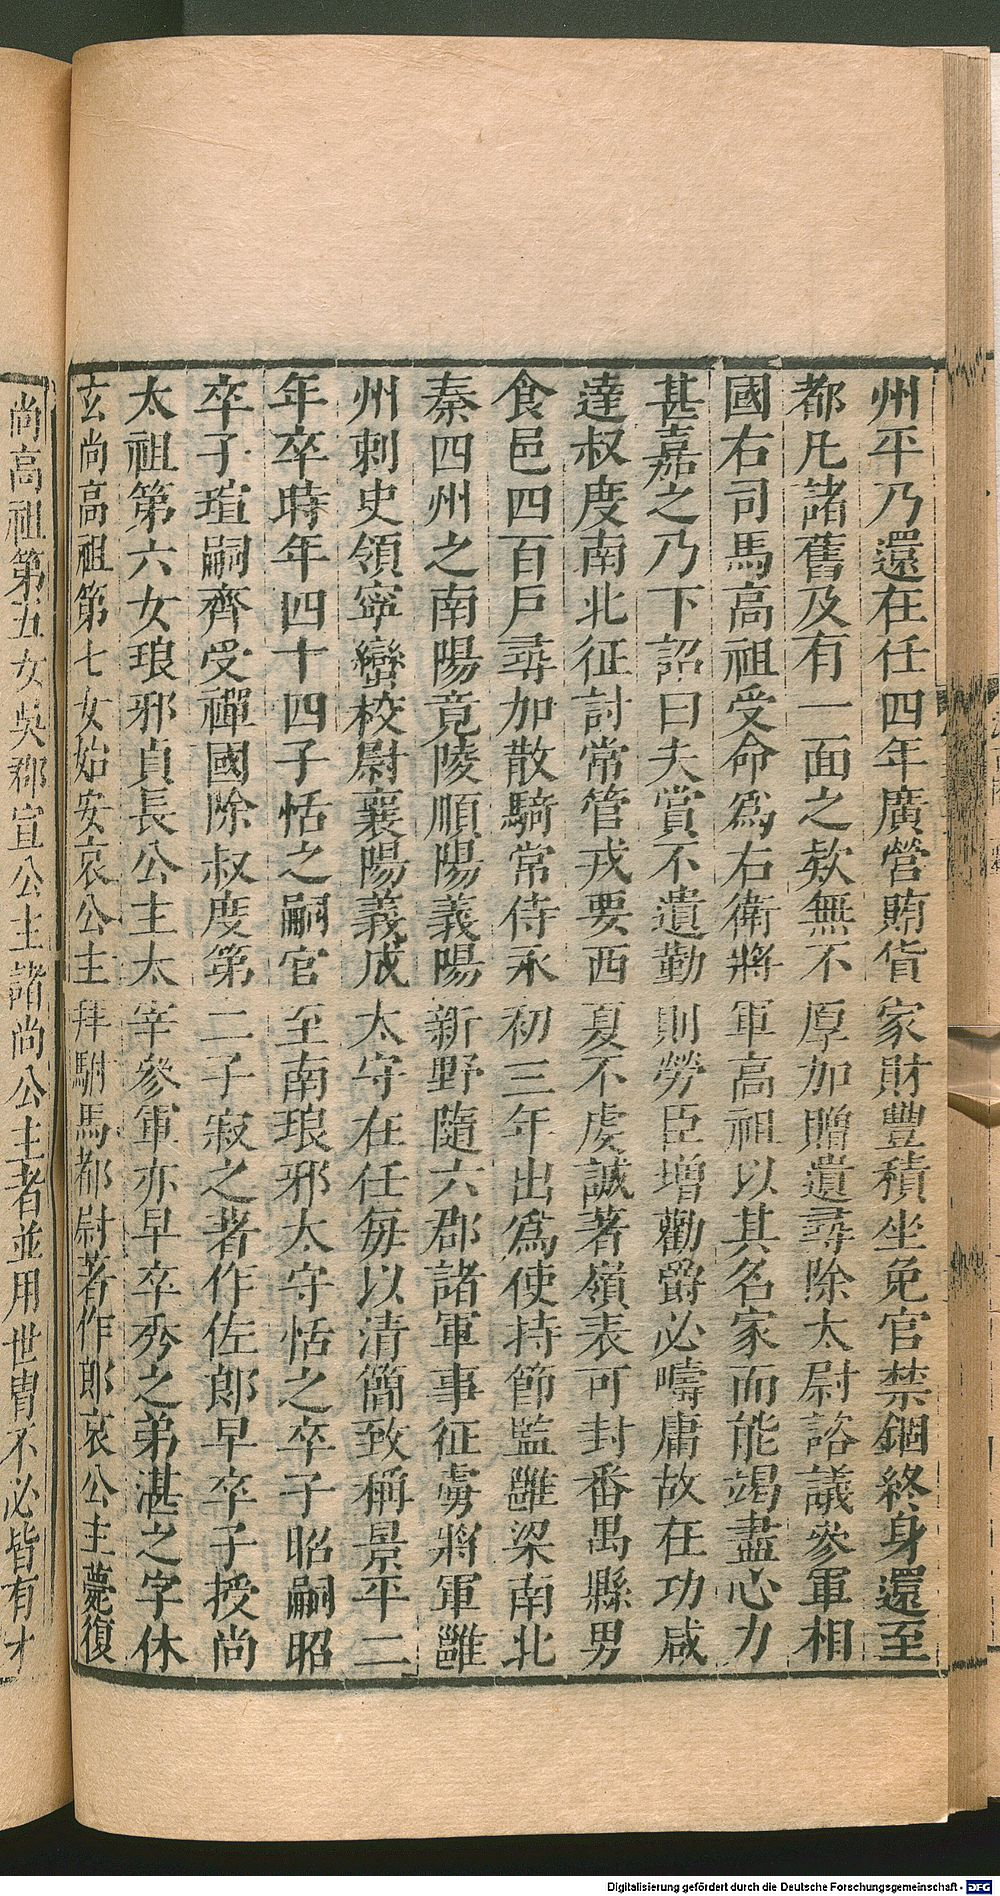 州平乃還在任四年廣營賄貨家財豐積坐免官禁錮終身還至
都凡諸舊及有一面之款無不厚加贈遺尋除太尉諮議參軍相
國右司馬高祖受命爲右衛將軍高祖以其名家而能竭盡心力
甚嘉之乃下詔曰夫賞不遺勤則勞臣增勸爵必疇庸故在功咸
達叔度南北征討常管戎要西夏不虔誠著嶺表可封番禺縣男
食邑四百戶尋加散騎常侍永初三年出爲使持節監雝梁南北
秦四州之南陽竟陵順陽義陽新野隨六郡諸軍事征虜將軍雝
州刺史領寧蠻校尉襄陽義成太守在任每以清簡致稱景平二
年卒時年四十四子恬之嗣官至南琅邪太守恬之卒子昭嗣昭
卒子瑄嗣齊受禪國除叔度第二子寂之著作佐郎早卒子授尚
太祖第六女琅邪貞長公主太宰參軍亦早卒秀之弟湛之字休
玄尚高祖第七女始安哀公主拜駙馬都尉著作郎哀公主薨復
尚高祖第五女吳郡宣公主諸尚公主者並用世冑不必皆有才
Digitalisierung gefördert durch die Deutsche Forschungsgemeinschaft - DFG